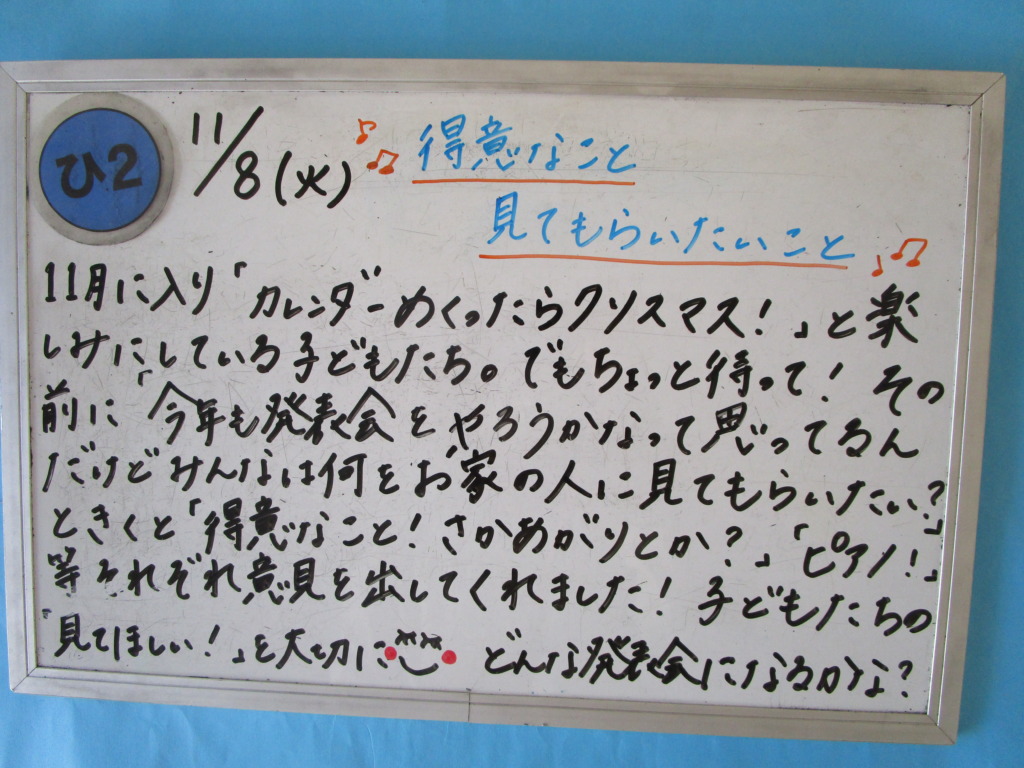 ひ2
11/8(火)
得意なこと
見てもらいたいこと
11月に入り「カレンダーめくったらクリスマス!」と楽
しみにしている子どもたち。でもちょっと待って! その
前に「今年も発表会をやろうかなって思ってるん
だけどみんなは何をお家の人に見てもらいたい?」
ときくと「得意なこと!さかあがりとか?」「ピアノ!」
等それぞれ意見を出してくれました!子どもたちの
「見てほしい!」を大切に どんな発表会になるかな?